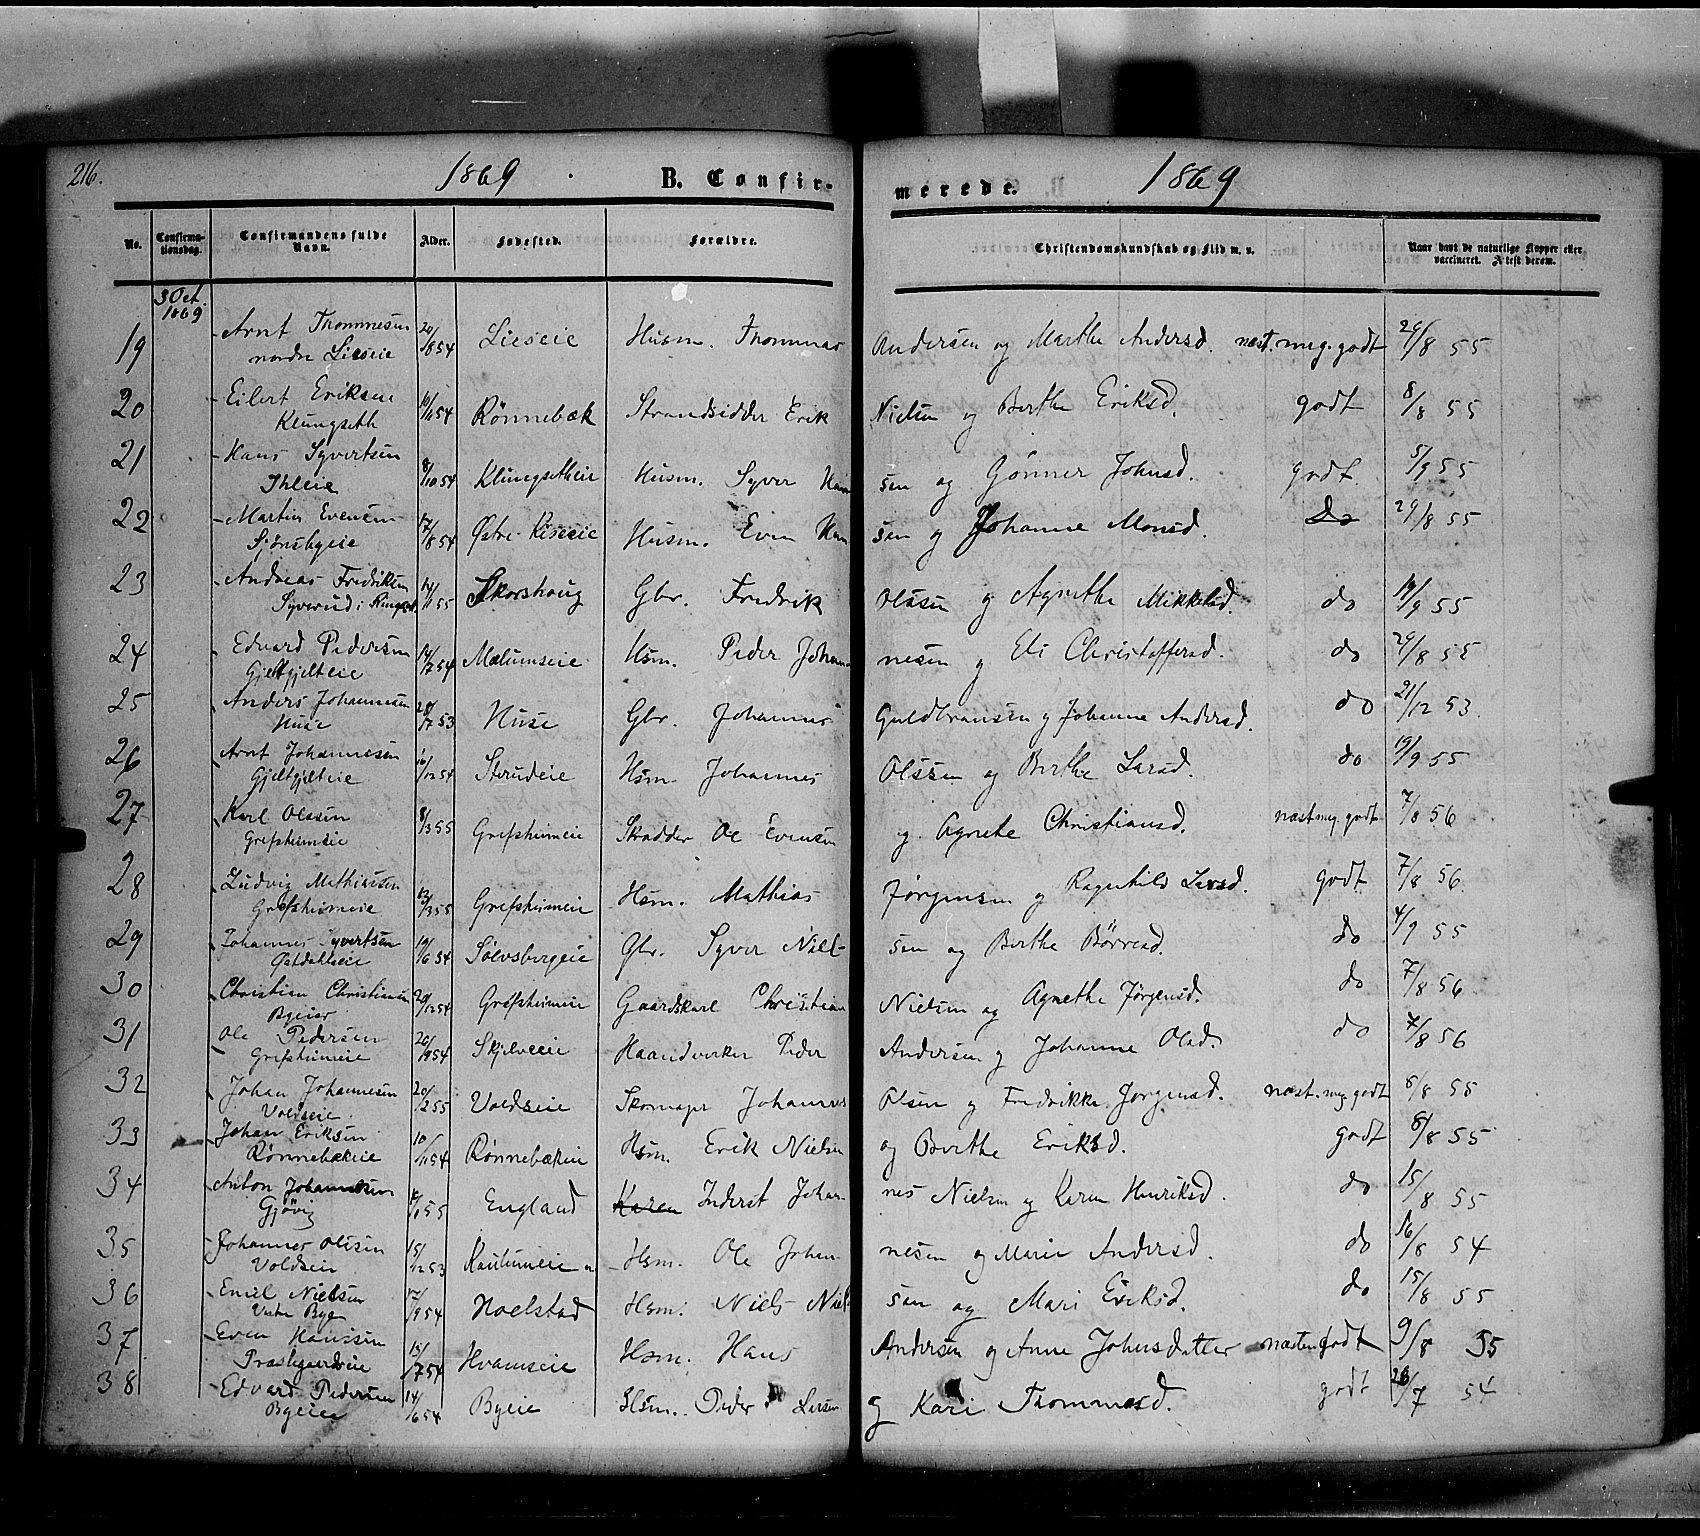 216.
1869
B. Confir-
merede.
1869
No.
Confirma-
tionsdag.
Confirmandens fulde
Navn.
Alder.
Fødested.
Forældre.
Christendomskundskab og Flid m. v.
Naar havt de naturlige Kopper eller
vaccineret. Attest derom.
3 Oct.
1869
19 Arnt Thommesen 20/8 54 Lieseie Husm. Thommas Andersen og Marthe Andersd. næst. meg. godt 29/8 55
nordre Lieseie
20 Eilert Eriksen 10/11 54 Rønnebæk Strandsidder Erik Nielsen og Berthe Eriksd. godt 8/8 55
Klungseth
21 Hans Syvertsen 8/10 54 Klungsetheie Husm. Syver Han sen og Gønner Johnsd. godt. 5/9 55
Ihleie
22 Martin Evensen 17/8 54 Østre Kiseeie Husm. Even Han sen og Johanne Monsd. do 29/8 55
23 Andreas Fredriksen 14/1 55 Skorshoug Gbr. Fredrik Olssen og Agnethe Mikkelsd. do 19/9 55
Syverud i Rings.
24 Edvard Pedersen 14/2 54 Mælumseie Hsm. Peder Johan- nesen og Eli Christoffersd. do 29/8 55
Gjeltgjelteie
25 Anders Johannesen 28/7 53 Huse Gbr. Johannes Guldbransen og Johanne Andersd. do 21/12 53.
Huse
26 Arnt Johannesen 16/12 54 Sterudeie Hsm. Johannes Olssen og Berthe Larsd. do 19/9 55
Gjeltgjelteie
27 Karl Olssen 8/3 55 Grefsheimeie Skrædder Ole Evensen og Agnete Christiansd. næst meg. godt 7/8 56
Grefsheimeie
28 Ludvig Mathiassen 13/3 55 Grefsheimeie Hsm. Mathias Jørgensen og Ragnhild Larsd. godt 7/8 56.
Grefsheimeie
29 Johannes Syvertsen 19/6 54 Sølvsbergeie Gbr. Syver Niel- sen og Berthe Børresd. do 4/9 55
30 Christian Christiansen 20/12 54 Grefsheimeie Gaardskarl Christian Nielsen og Agnethe Jørgensd. do 7/8 56
Byeier
31 Ole Pedersen 26/9 54 Skjelveeie Haandverker Peder Andersen og Johanne Olsd. do 7/8 56
Grefsheimeie
32 Johan Johannesen 20/2 55 Voldseie Skomager Johannes Olsen og Fredrikke Jørgensd. næst. meg godt 6/8 55
Voldseie
33 Johan Eriksen 10/11 54 Rønnebækeie Hsm. Erik Nielsen og Berthe Eriksd. godt 6/8 55
Rønnebækeie
34 Anton Johannesen 55 England Karen Inderst Johan- nes Nielsen og Karen Henriksd. do 15/8 55
Gjøvig
35 Johannes Olssen 15/12 53 Hsm. Ole Johan- nesen og Marie Andersd. do 16/8 54
Voldseie
36 Emil Nielsen 17/9 54 Hoelstad Hsm. Niels Niel- sen og Mari Eriksd. do 15/8 55
Vestre Bye
37 Even Hanssen 15/7 54 Hvamseie Hsm. Hans Andersen og Anne Johnsdatter næsten godt 9/8 55
Præstgaardseie
38 Edvard Pedersen 14/6 54 Byeie Hsm. Peder Larsen og Kari Thommesd. godt 26/7 54
Byeie